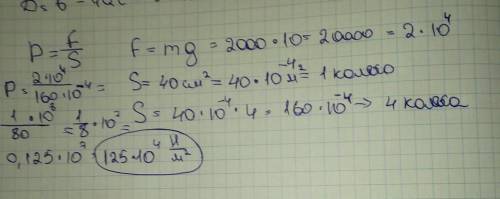 D = 6 -
P = F/S F = mg = 2000 · 10 = 20000 = 2 · 10⁴
P = 2·10⁴/160·10⁻⁴ = S = 40 см² = 40 · 10⁻⁴ м² = 1 колесо
1·10⁸/80 = 1/8 · 10⁷ = S = 40 · 10⁻⁴ · 4 = 160 · 10⁻⁴ → 4 колеса
0,125 · 10⁷ 125 · 10⁴ Н/м²